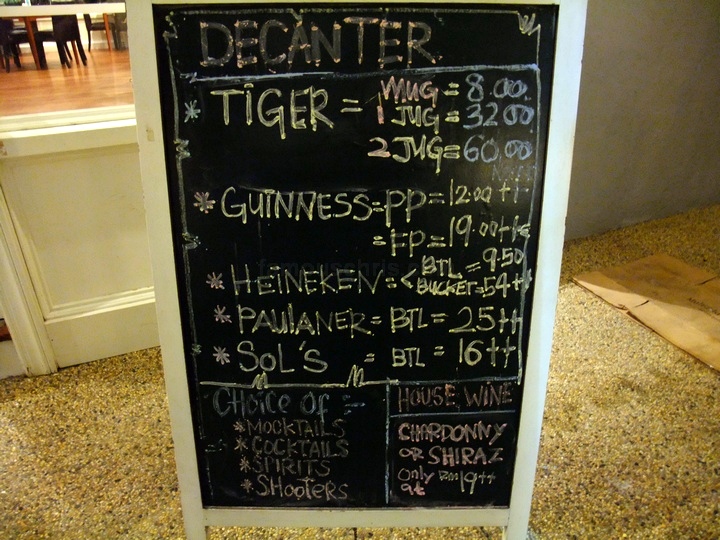 DECANTER
* TIGER = MUG = 8.00
1 JUG = 32.00
2 JUG = 60.00
* GUINNESS = PP = 12.00 ++
= FP = 19.00 ++
* HEINEKEN = < BTL = 9.50
BUCKET = 54++
* PAULANER = BTL = 25++
* SOL'S = BTL = 16++
CHOICE OF :-
* MOCKTAILS
* COCKTAILS
* SPIRITS
* SHOOTERS
HOUSE WINE
CHARDONNY
OR SHIRAZ
Only RM19++
at